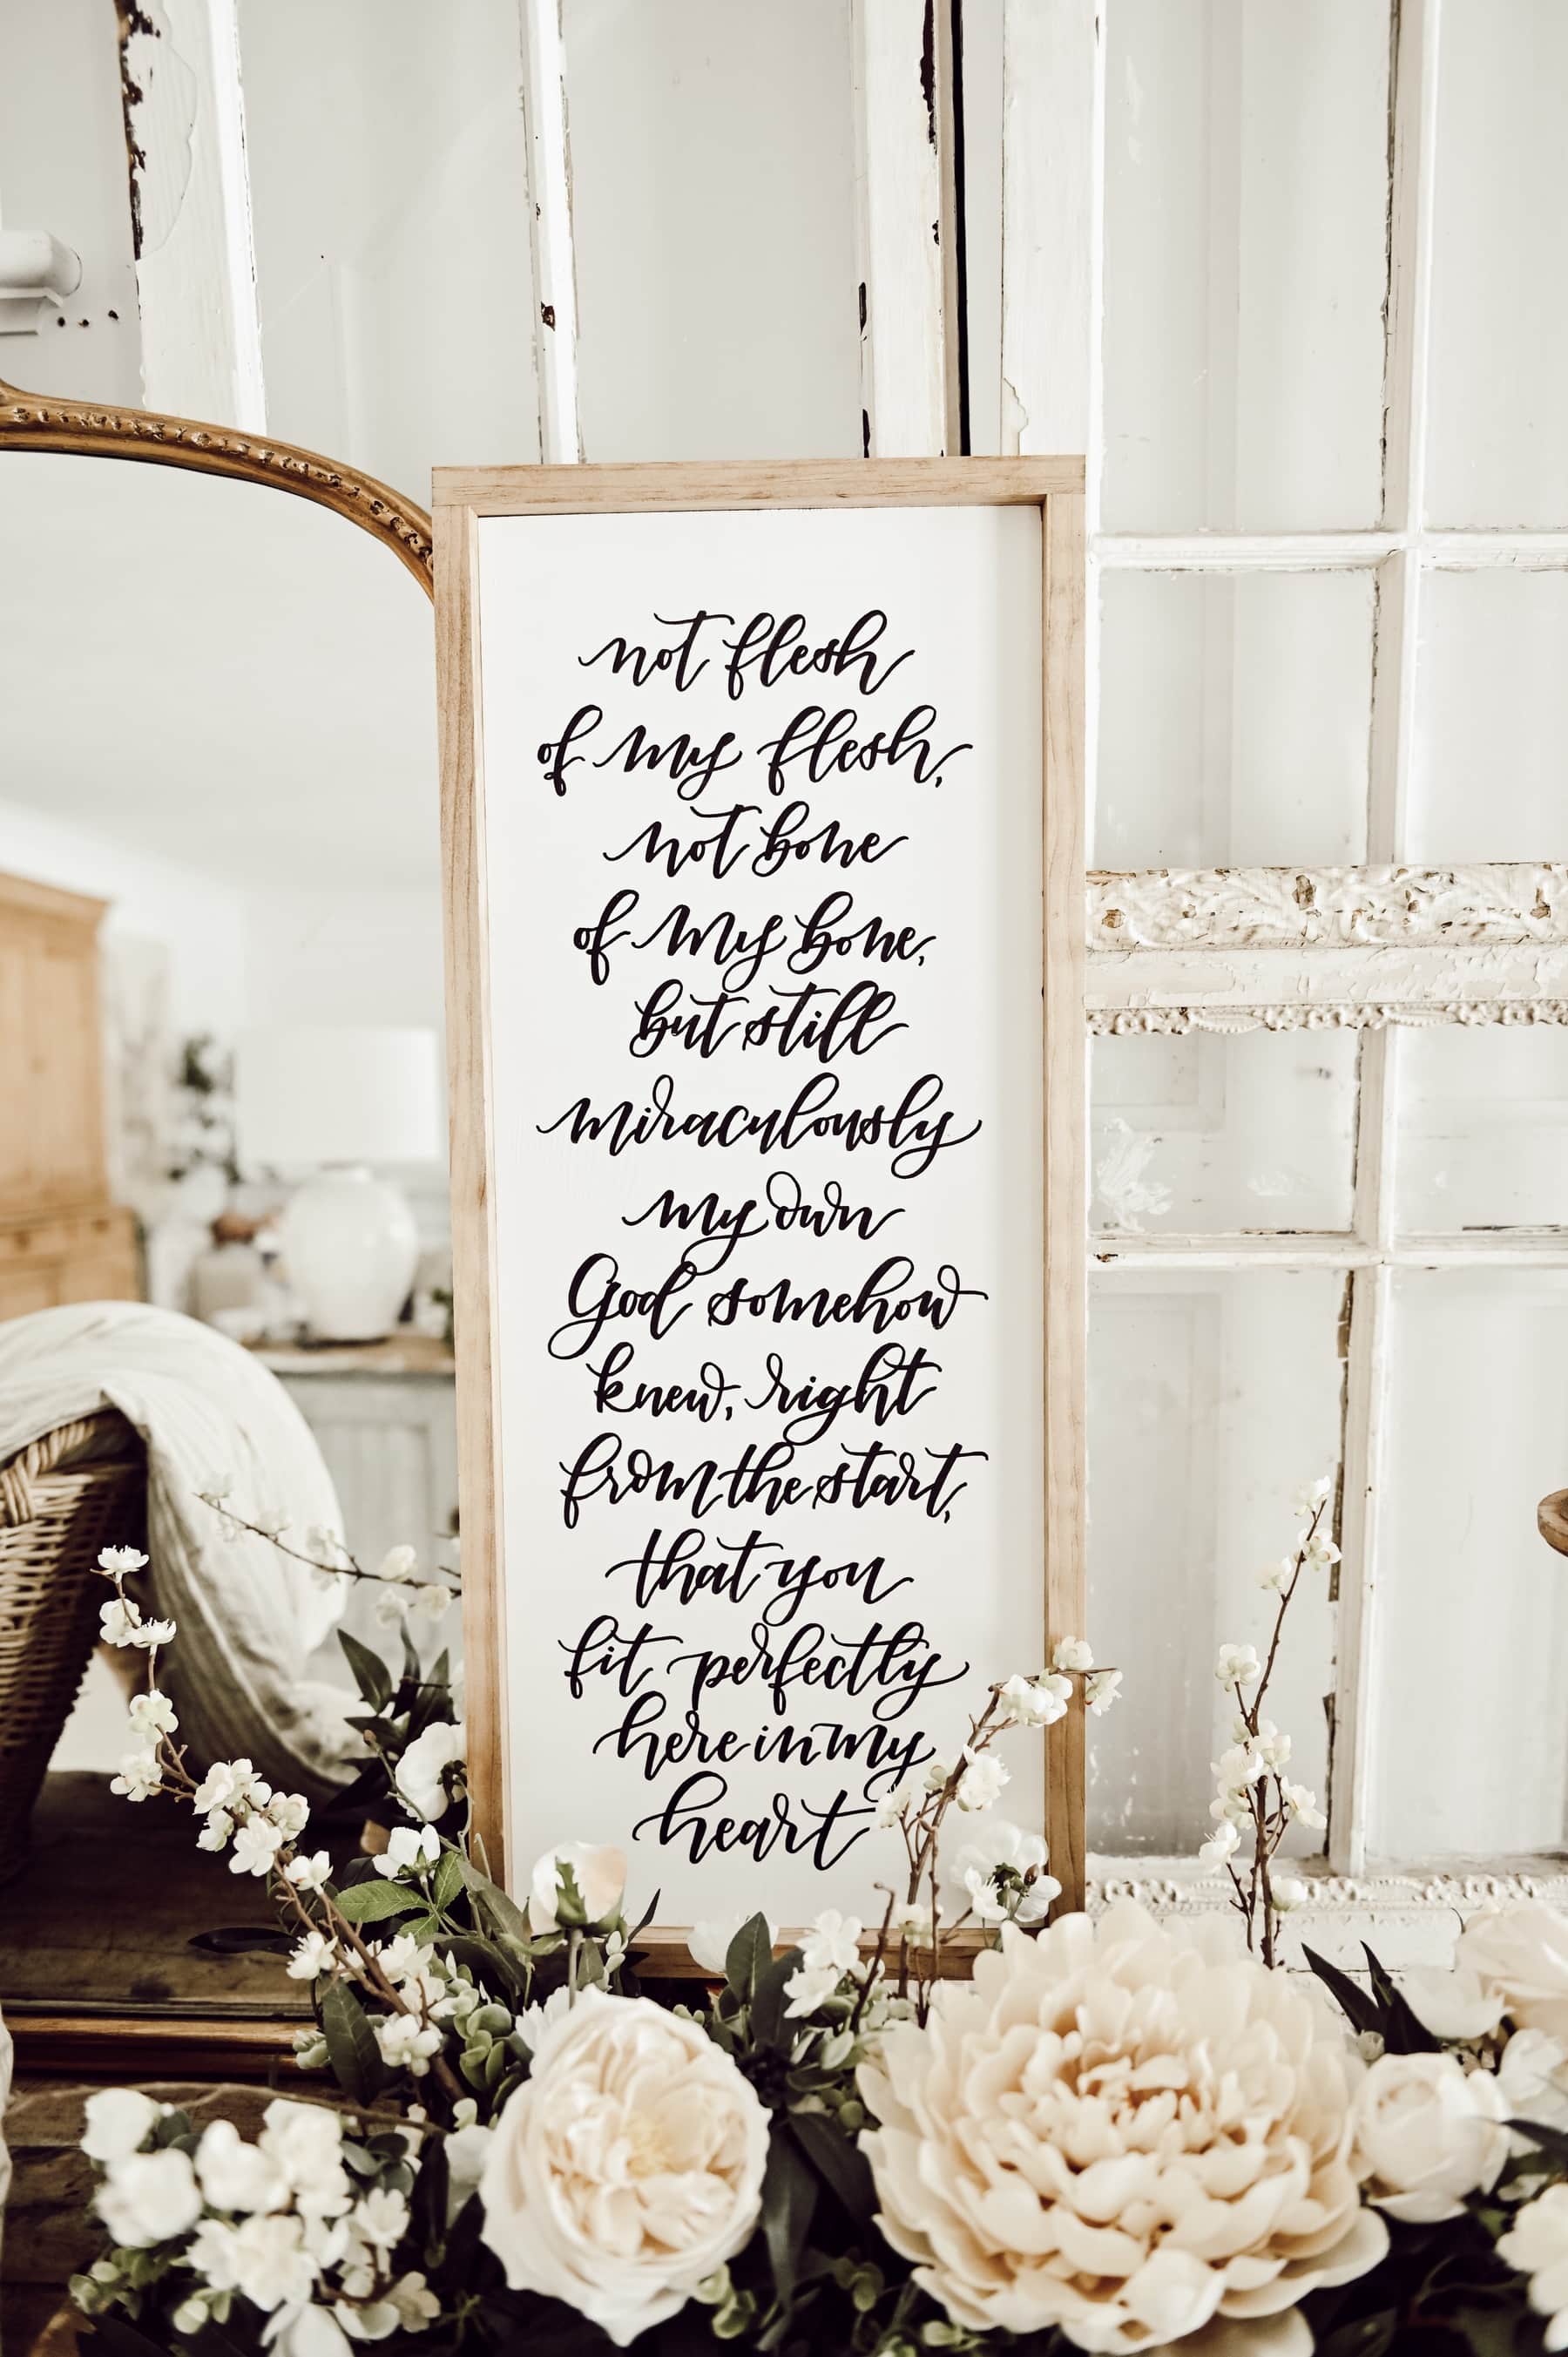 not flesh
of my flesh,
not bone
of my bone,
but still
miraculously
my own
God somehow
knew, right
from the start,
that you
fit perfectly
here in my
heart